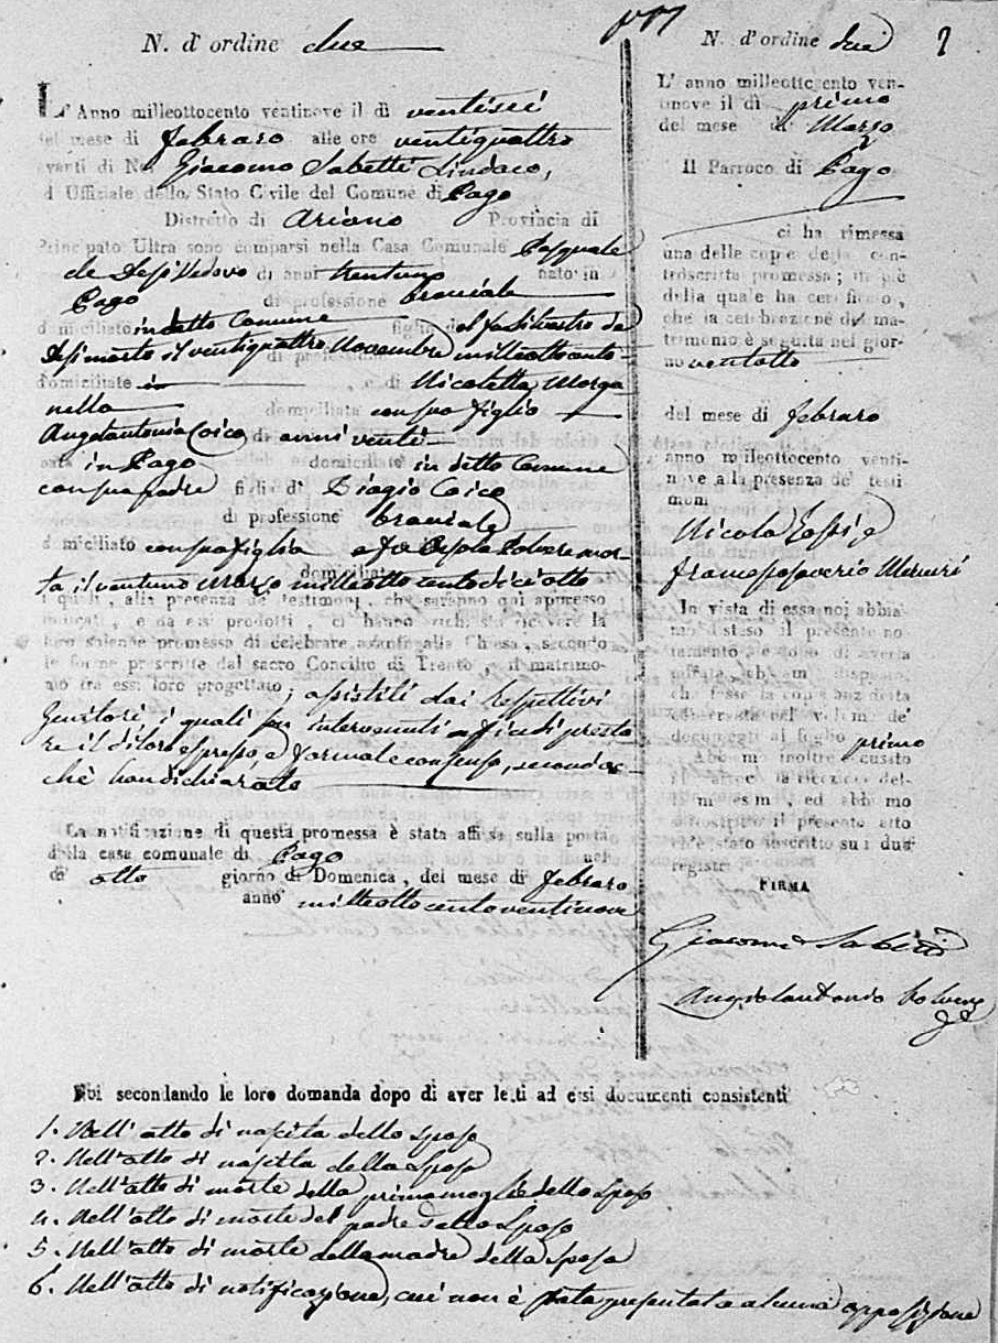 N. d' ordine due
L' Anno milleottocento ventinove il dì ventisei
del mese di Febraro alle ore ventiquattro
avanti di Noi Giacomo Sabetti Sindaco,
d Uffiziale dello Stato Civile del Comune di Pago
Distretto di Ariano Provincia di
Principato Ultra sono comparsi nella Casa Comunale Pasquale
de Vedovo di anni trentuno nato in
Pago di professione bracciale
domiciliato in detto Comune figlio del fu Silvestro de
morto il ventiquattro Novembre milleottocento
domiciliato in , e di Nicoletta Morga-
nella domiciliata con suo figlio
Angelantonia Coico di anni venti
nata in Pago domiciliata in detto Comune
con suo padre figlia di Biagio Coico
di professione bracciale
domiciliato con sua figlia e fu Orsola mor-
ta il ventuno Marzo domiciliata milleottocentodieciotto
i quali, alla presenza de' testimonj, che saranno qui appresso
indicati, e da essi prodotti, ci hanno richiesto di ricevere la
loro solenne promessa di celebrare avanti alla Chiesa, secondo
le forme prescritte dal sacro Concilio di Trento, il matrimo-
nio tra essi loro progettato; assistiti dai rispettivi
Genitori, i quali son intervenuti a fine di presta-
re il di loro espresso, e formale consenso, secondoc-
chè han dichiarato
La notificazione di questa promessa è stata affissa sulla porta
della casa comunale di Pago nel
dì otto giorno di Domenica, del mese di Febraro
anno milleottocentoventinove
N. d' ordine due 2
L' anno milleottocento ven-
tinove il dì primo
del mese di Marzo
Il Parroco di Pago
ci ha rimessa
una delle copie della con-
troscritta promessa; in piè
della quale ha certificato,
che la celebrazione del ma-
trimonio è seguita nel gior-
no ventotto
del mese di Febraro
anno milleottocento venti-
nove alla presenza de' testi-
moni
Nicola Zossi, e
Francescosaverio Mercuri
In vista di essa noi abbia-
mo disteso il presente no-
tamento e dopo di averla
cifrata abbiam disposto
che fosse la copia anzidetta
conservata nel volume de'
documenti al foglio primo
Abbiamo inoltre accusato
al Parroco la ricezione del-
la medesima, ed abbiamo
sottoscritto il presente atto
ch' è stato inscritto su i due
registri
FIRMA
Giacomo Sabetti
Noi secondando le loro domanda dopo di aver letti ad essi documenti consistenti
1. Nell' atto di nascita dello sposo
2. Nell' atto di nascita della sposa
3. Nell' atto di morte della prima moglie dello sposo
4. Nell' atto di morte del padre dello sposo
5. Nell' atto di morte della madre della sposa
6. Nell' atto di notificazione, cui non è stata presentata alcuna opposizione